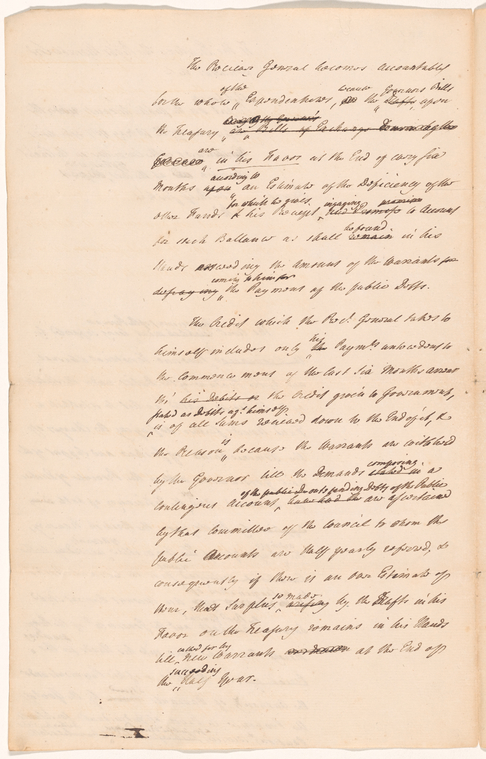 The Receiver General becomes accountable
of the because Governors Bills
for the whole Expenditures, the Drafts upon
the Treasury are Bills of Exchange
are in his Favor at the End of every six
according to
Months upon an Estimate of the Deficiency of the
for which he gives engaging
other Funds & his Receipt to Account
be found
for such Ballance as shall remain in his
Hands exceeding the amount of the Warrants for
coming to him for
defraying the Payment of the public Debts.
The Credit which the Recr. General takes to
his
himself includes only the Paymts antecedent to
the commencement of the last six Months account
tho' his Debits or the Credit given to Government,
stated as Debits agt. himself
is of all sums received down to the End of it, &
is
the Reason because the Warrants are withheld
composing
by the Governor till the Demands stated in a
of the public
contingent Account are ascertained
by that Committee of the Council to whom the
public Accounts are Half yearly referred, &
consequently if there is an over Estimate of
so made
ours, that Surplus arising by the Drafts in his
Favor on the Treasury remains in his Hands
called for by
till new Warrants at the End of
succeeding
the Half Year.